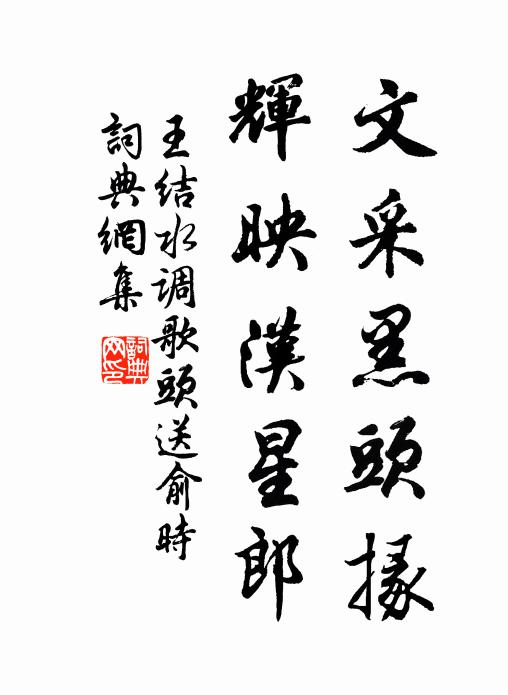 文采黑頭掾
輝映漢星郎
王结水调歌頭送俞時
詞典網集
詞典网印